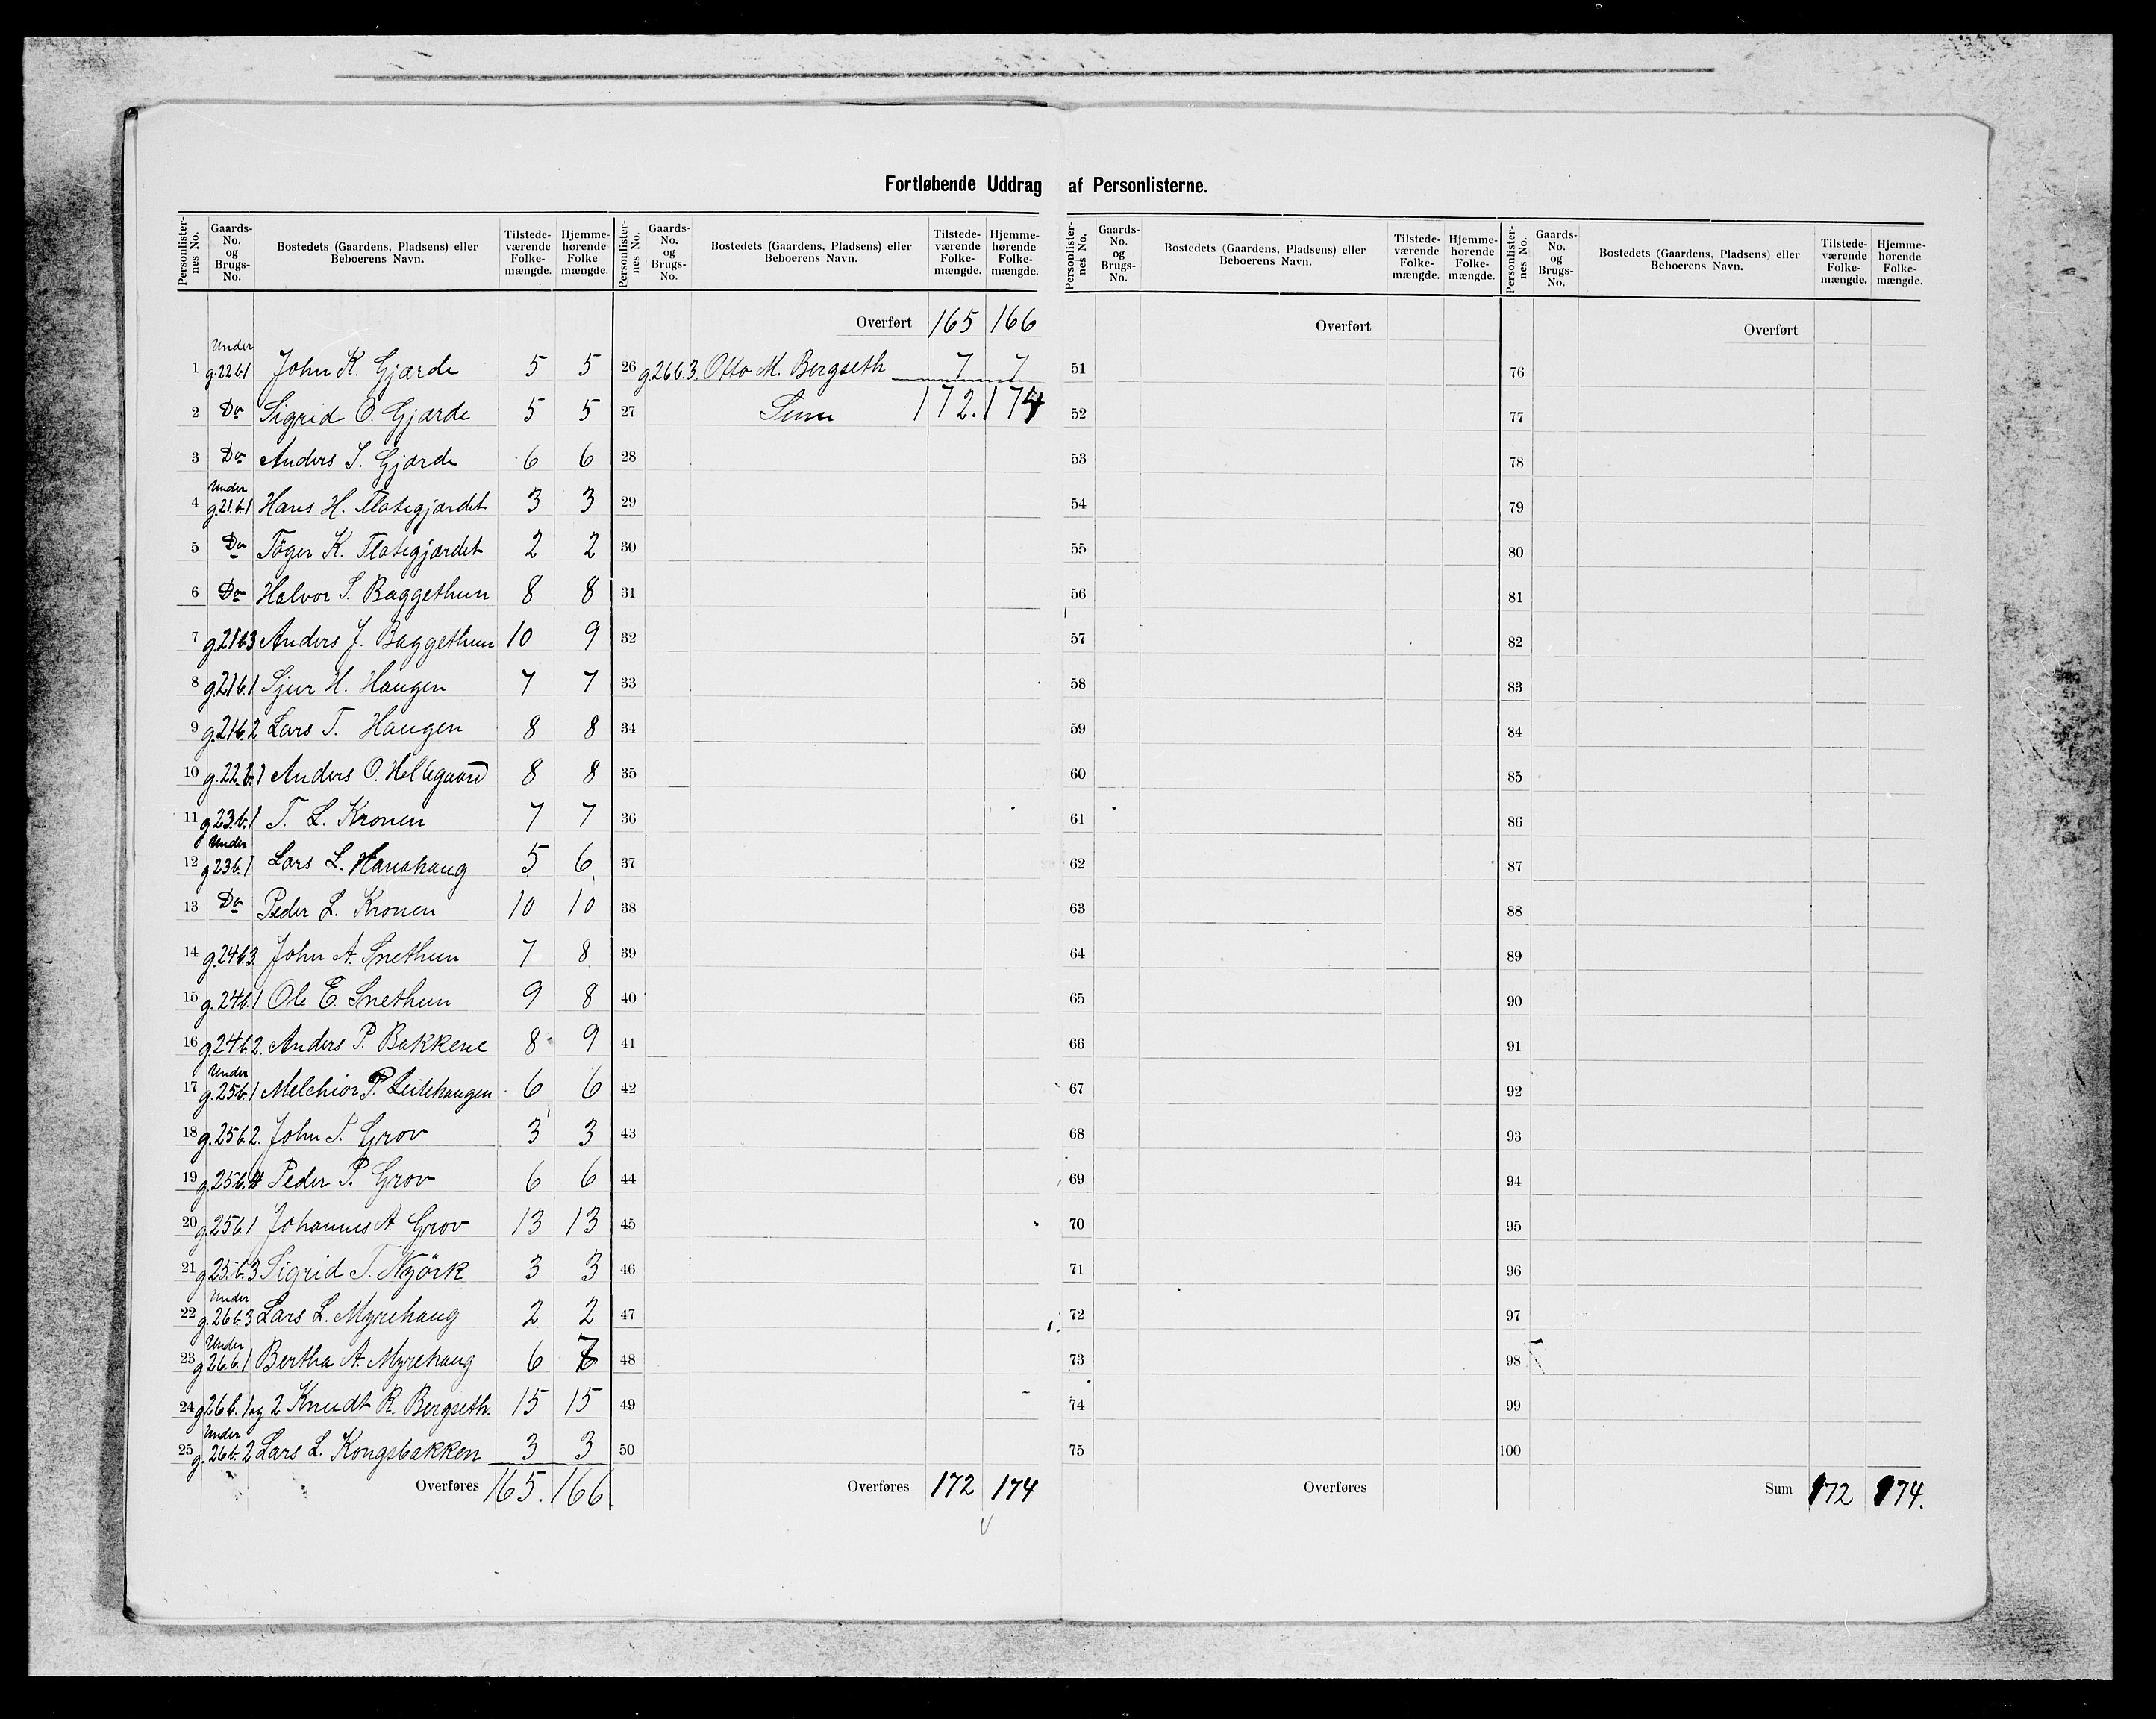 Fortløbende Uddrag af Personlisterne.
Personlister-nes No. | Gaards-No. og Brugs-No. | Bostedets (Gaardens, Pladsens) eller Beboerens Navn. | Tilstede-værende Folke-mængde. | Hjemme-hørende Folke mængde.
Personlister-nes No. | Gaards-No. og Brugs-No. | Bostedets (Gaardens, Pladsens) eller Beboerens Navn. | Tilstede-værende Folke-mængde. | Hjemme-hørende Folke-mængde.
Personlister-nes No. | Gaards-No. og Brugs-No. | Bostedets (Gaardens, Pladsens) eller Beboerens Navn. | Tilstede-værende Folke-mængde. | Hjemme-hørende Folke-mængde.
Personlister-nes No. | Gaards-No. og Brugs-No. | Bostedets (Gaardens, Pladsens) eller Beboerens Navn. | Tilstede-værende Folke-mængde. | Hjemme-hørende Folke-mængde.
1 Under g.22b.1 John K. Gjærde 5 5
2 Do Sigrid O. Gjærde 5 5
3 Do Anders I. Gjærde 6 6
4 Under g.21.b.1 Hans H. Flategjærdet 3 3
5 Do Töger K. Flategjærdet 2 2
6 Do Halvor S. Baggethun 8 8
7 g.21b3 Anders J. Baggethun 10 9
8 g.21b.1 Sjur H. Haugen 7 7
9 g.21b.2 Lars T. Haugen 8 8
10 g.22.b.1 Anders O. Hellegaard 8 8
11 g.23.b.1 T. L. Kronen 7 7
12 Under g23b.1 Lars L. Hanahaug 5 6
13 Do Peder L. Kronen 10 10
14 g.24b.3. John A. Snethun 7 8
15 g.24b.1 Ole E. Snethun 9 8
16 g.24b.2. Anders P. Bakkene 8 9
17 Under g.25b.1 Melchior P. Leitehaugen 6 6
18 g.25b.2. John T. Grov 3 3
19 g.25b.4 Peder P. Grov 6 6
20 g.25b.1 Johannes A. Grov 13 13
21 g25.b.3 Sigrid T. Nyörk 3 3
22 Under g.26b.3 Lars L. Myrehaug 2 2
23 Under g26.b.1 Bertha A. Myrehaug 6 7
24 g26b.1 og 2 Knudt R. Bergseth. 15 15
25 Under g.26b.2 Lars L. Kongsbakken 3 3
Overføres 165. 166.
Overført 165 166
26 g.26b.3. Otto M. Bergseth 7 7
27 Sum 172. 174
28
29
30
31
32
33
34
35
36
37
38
39
40
41
42
43
44
45
46
47
48
49
50
Overføres 172 174
Overført
51
52
53
54
55
56
57
58
59
60
61
62
63
64
65
66
67
68
69
70
71
72
73
74
75
Overføres
Overført
76
77
78
79
80
81
82
83
84
85
86
87
88
89
90
91
92
93
94
95
96
97
98
99
100
Sum 172 174.